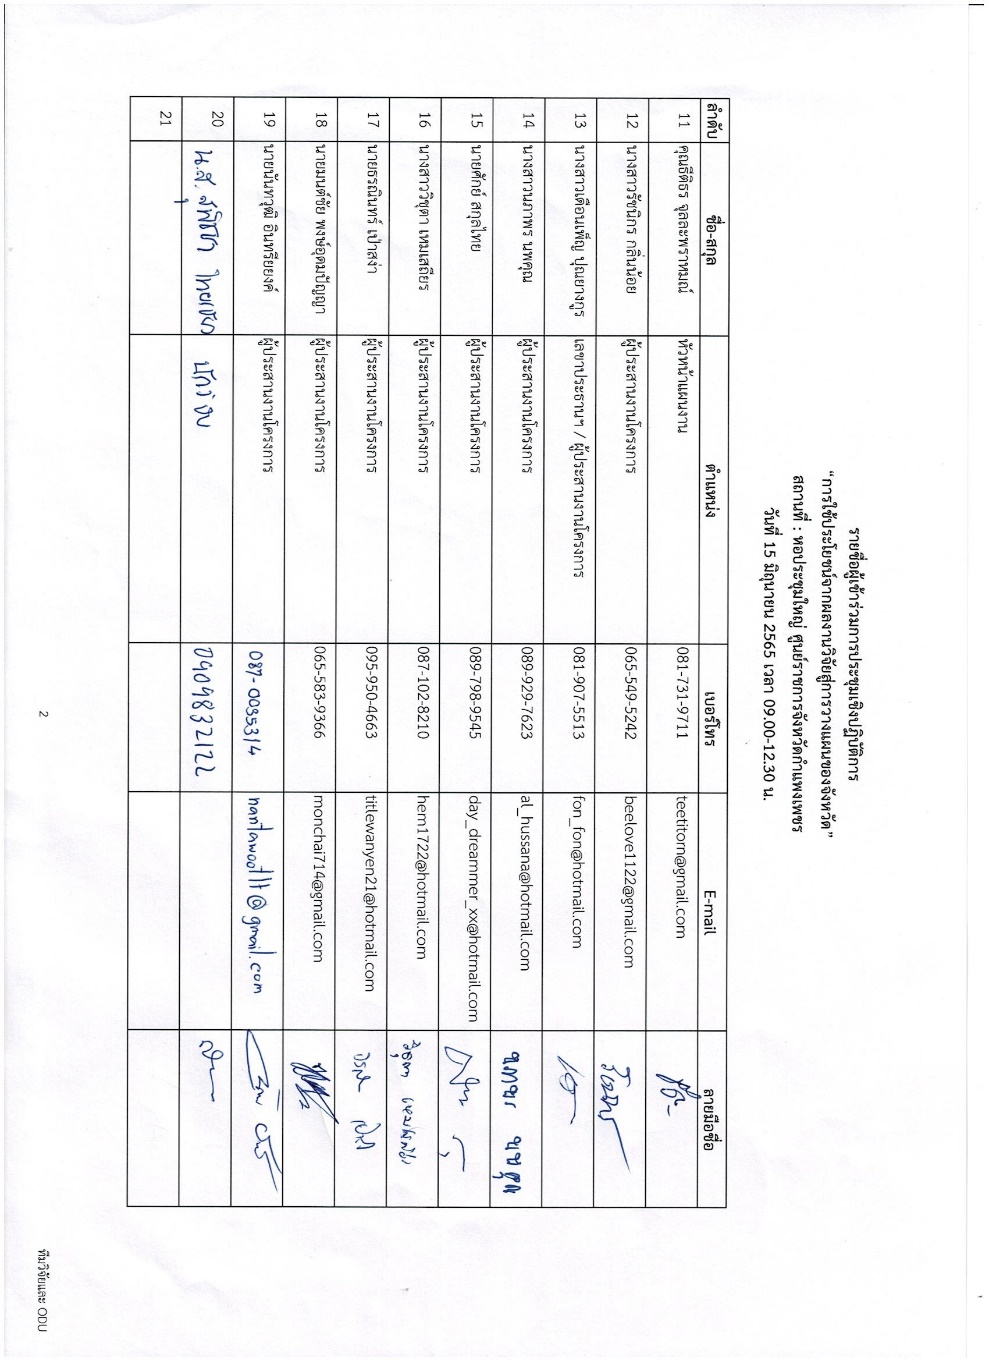 รายชื่อผู้เข้าร่วมการประชุมเชิงปฏิบัติการ
“การใช้ประโยชน์จากผลงานวิจัยสู่การวางแผนของจังหวัด”
สถานที่ : หอประชุมใหญ่ ศูนย์ราชการจังหวัดกำแพงเพชร
วันที่ 15 มิถุนายน 2565 เวลา 09.00-12.30 น.
ลำดับ ชื่อ-สกุล ตำแหน่ง เบอร์โทร E-mail ลายมือชื่อ
11 คุณธีติธร จุลละพราหมณ์ หัวหน้าแผนงาน 081-731-9711 teetitorn@gmail.com
12 นางสาวรัชนิกร กลิ่นน้อย ผู้ประสานงานโครงการ 065-549-5242 beelove1122@gmail.com
13 นางสาวเดือนเพ็ญ ปุณยางกูร เลขาประธานฯ / ผู้ประสานงานโครงการ 081-907-5513 fon_fon@hotmail.com
14 นางสาวนภาพร นพคุณ ผู้ประสานงานโครงการ 089-929-7623 al_hussana@hotmail.com นภาพร นพคุณ
15 นายศักย์ สกุลไทย ผู้ประสานงานโครงการ 089-798-9545 day_dreammer_xx@hotmail.com
16 นางสาววิชุตา เหมเสถียร ผู้ประสานงานโครงการ 087-102-8210 hem1722@hotmail.com วิชุตา เหมเสถียร
17 นายธรณินทร์ เป่าสง่า ผู้ประสานงานโครงการ 095-950-4663 titlewanyen21@hotmail.com
18 นายมนต์ชัย พงษ์อุดมปัญญา ผู้ประสานงานโครงการ 065-583-9366 monchai714@gmail.com
19 นายนันทวุฒิ อินทรียยงค์ ผู้ประสานงานโครงการ 087-0035314 nantawoot17@gmail.com
20 น.ส. สุพิชชา ไทยเขียว นักวิจัย 0909832122
21
2
ทีมวิจัยและ ODU